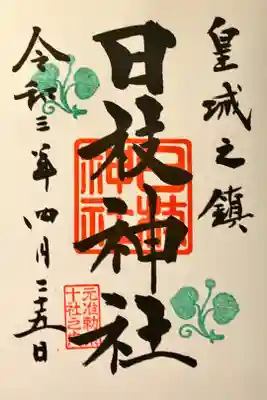 皇城之鎮
日枝神社
令和三年四月二十五日
日枝神社
元准勅
十社之内